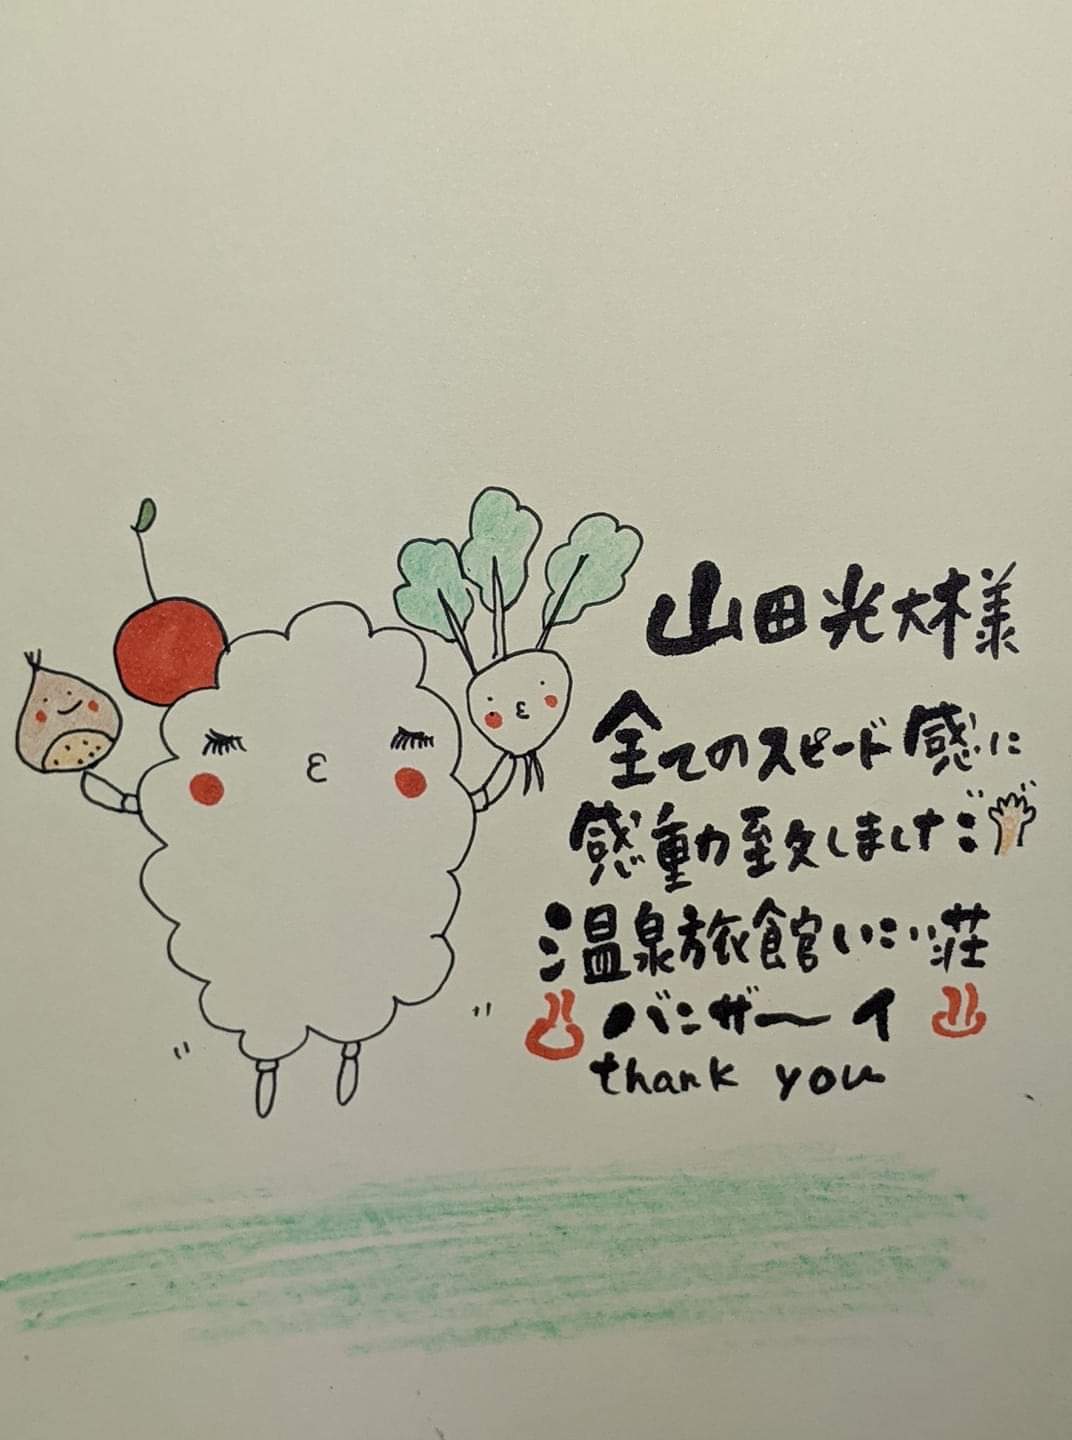 山田光大様
全てのスピード感に
感動致しました
温泉旅館いこい荘
♨バンザーイ♨
thank you